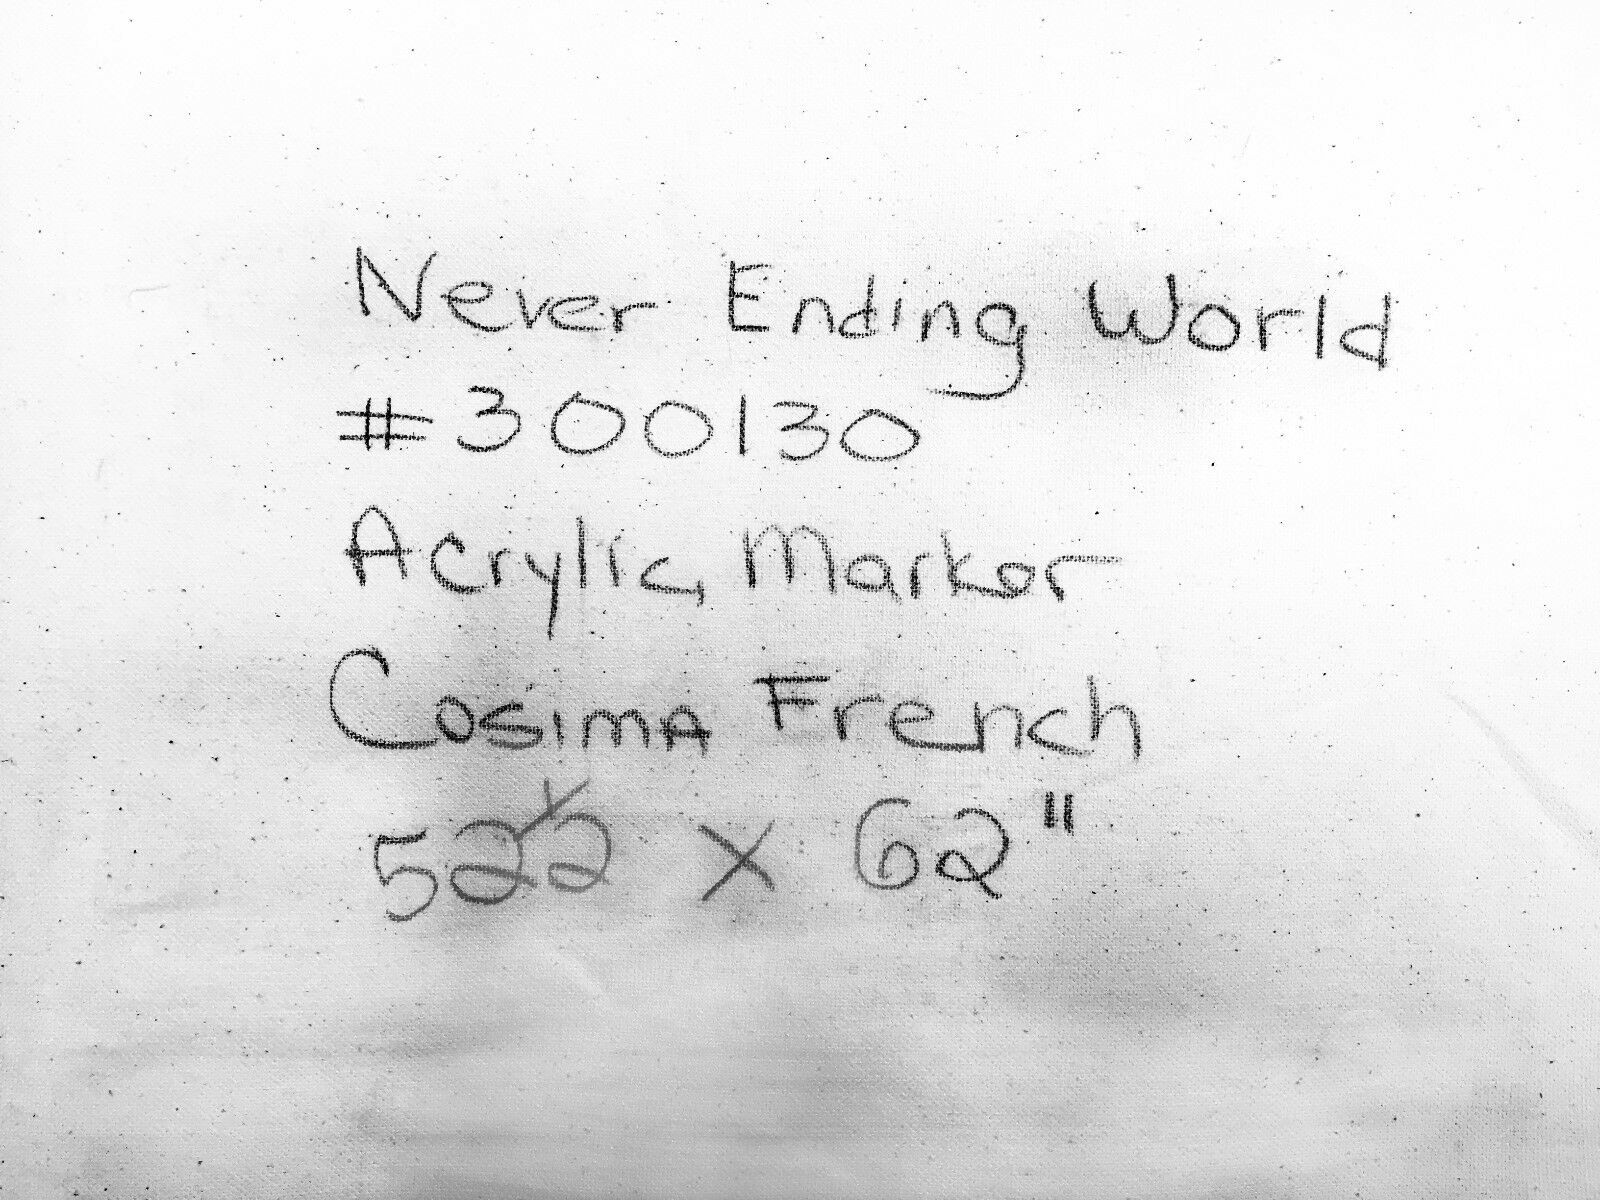 Never Ending World
#300130
Acrylic, Marker
Cosima French
52½ x 62"